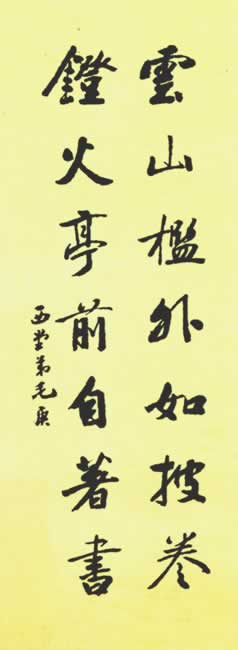 雲山檻外如披卷
鐙火亭前自著書
西堂弟毛奐